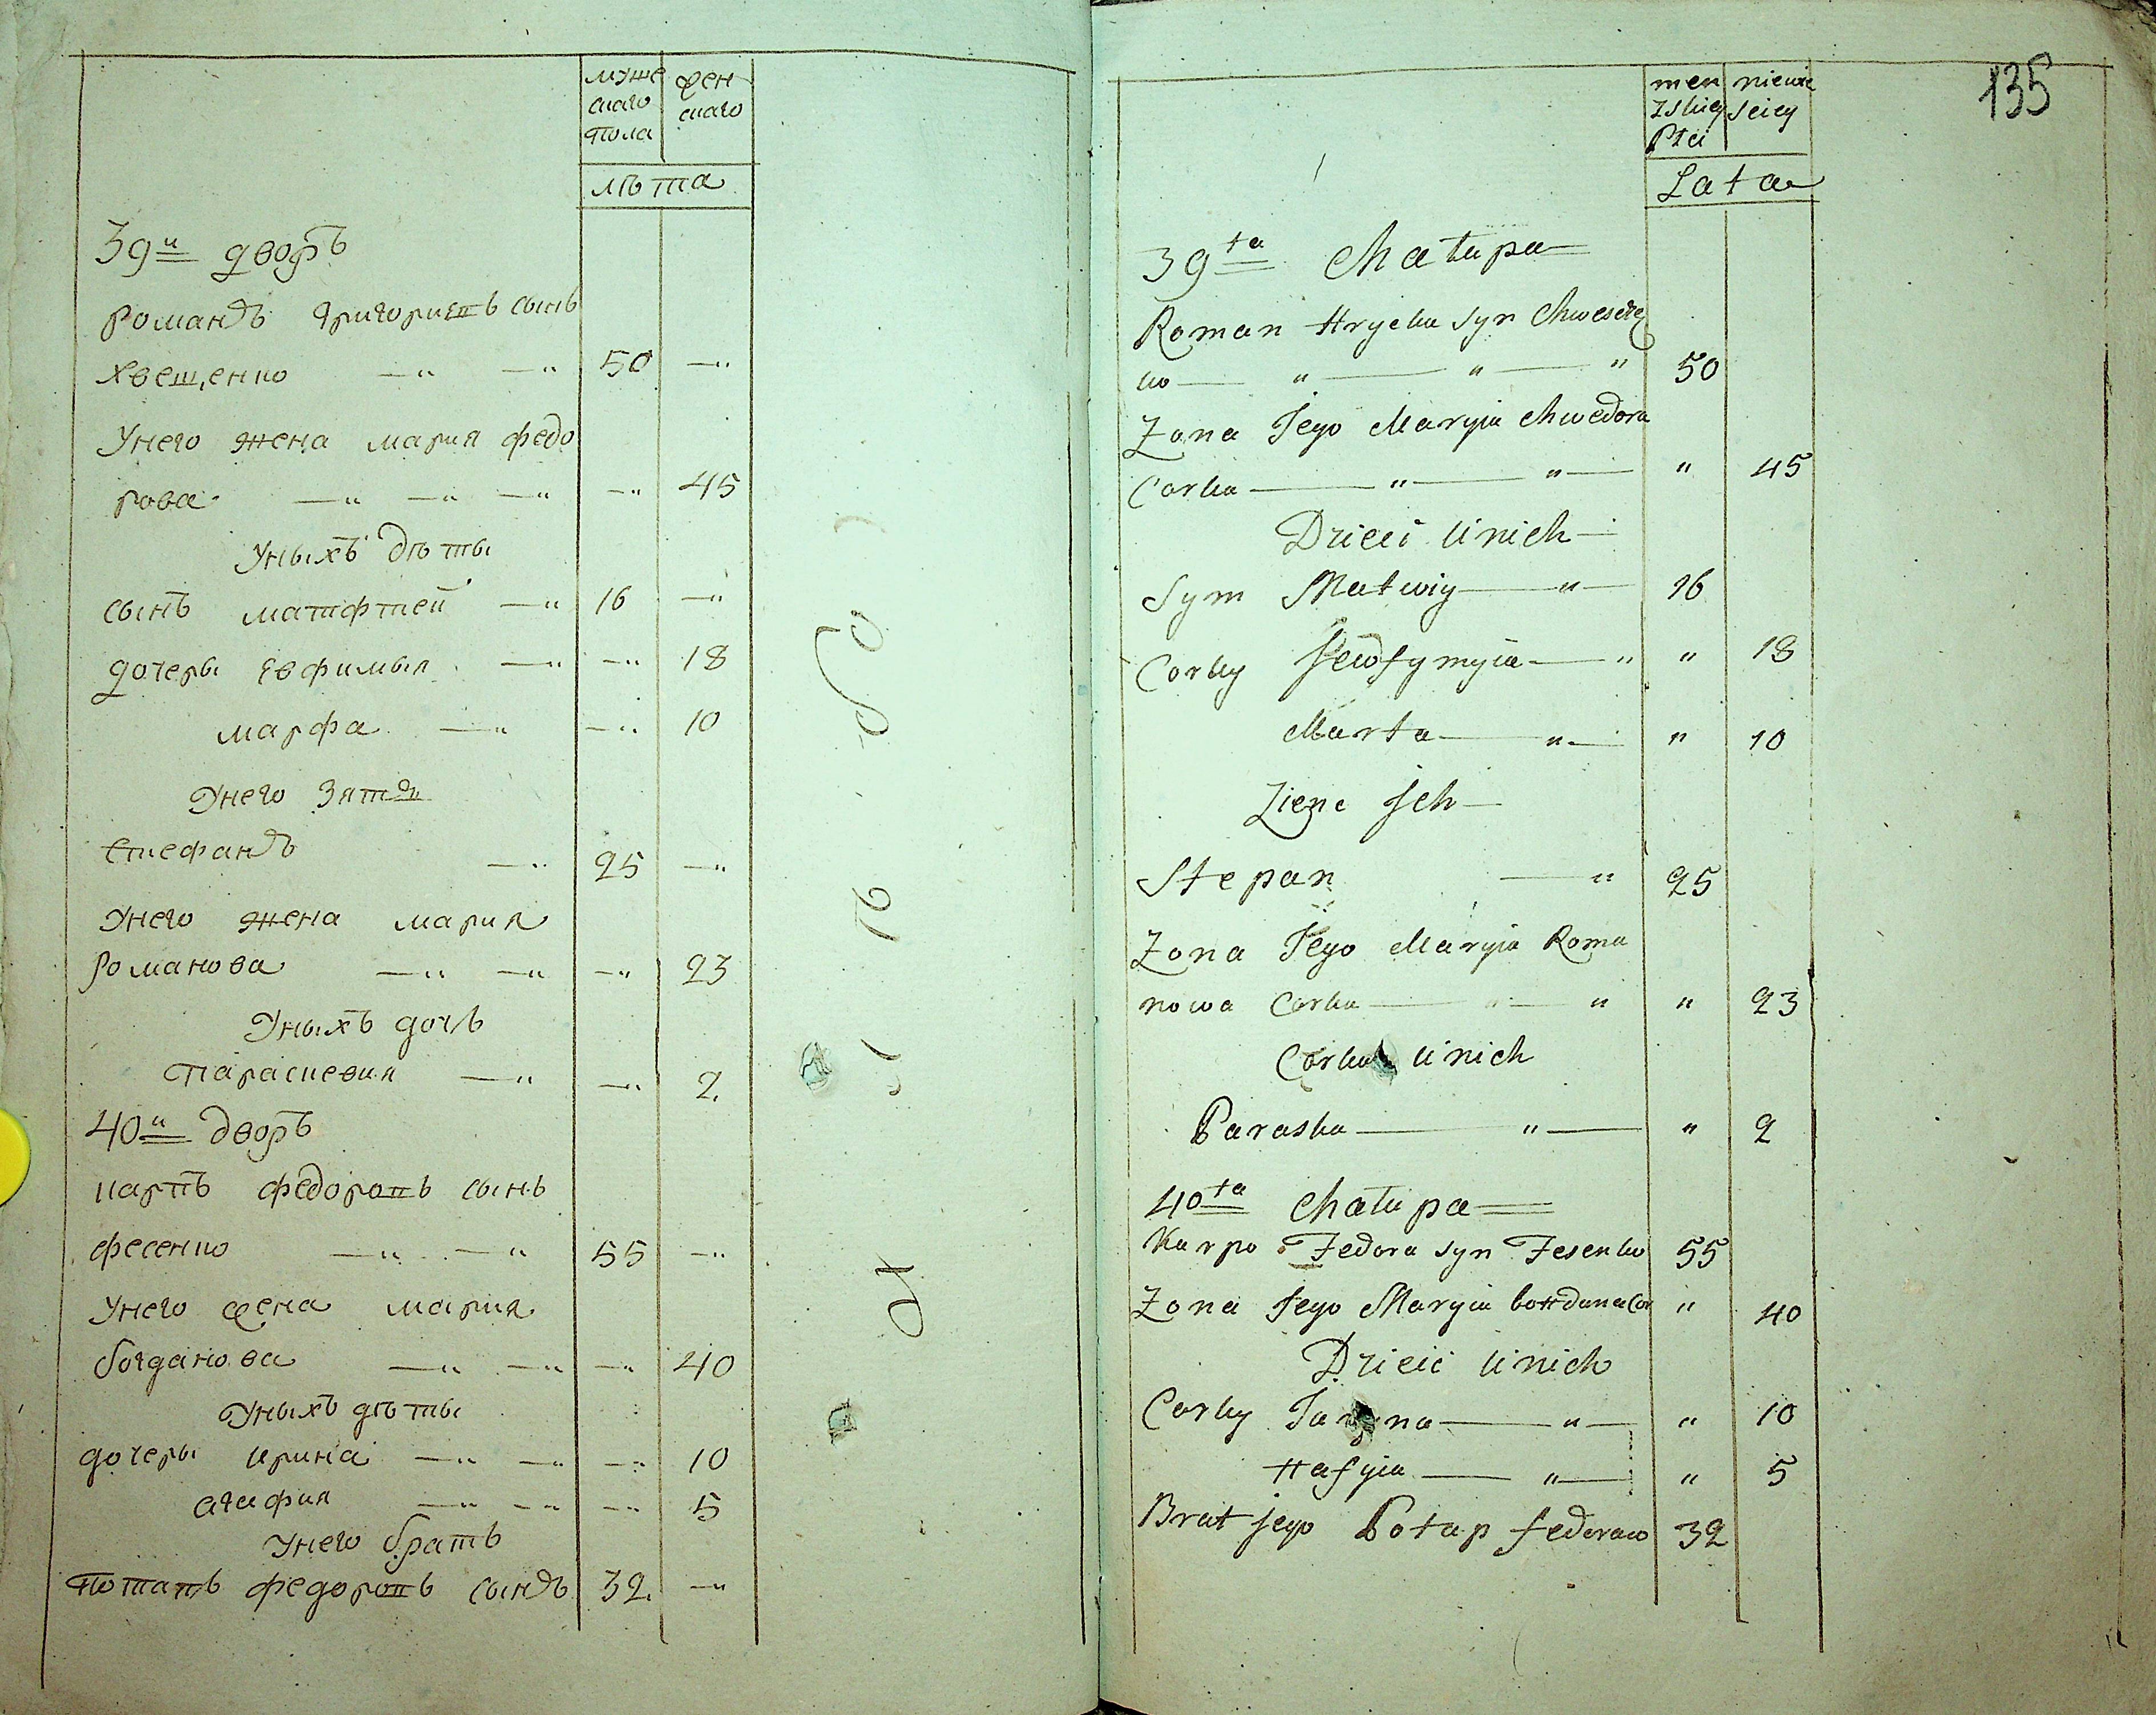 муже
скаго
пола
жен
скаго
лѣта
39й дворъ
романъ григоривъ сынъ
хвещенко —„ —„ 50 —„
Унего жена мария федо
рова —„ —„ —„ —„ 45
Уныхъ дѣты
сынъ матфтей —„ 16 —„
дочеры Евфимыя —„ —„ 18
марфа —„ —„ 10
Унего зять
Стефанъ —„ 25 —„
Унего жена мария
романова —„ —„ —„ 23
Уныхъ дочъ
параскевия —„ —„ 2.
40й дворъ
карпъ федоровъ сынъ
фесенко —„ —„ 55 —„
Унего жена мария
богданова —„ —„ —„ 40
Уныхъ дѣты
дочеры ирина —„ —„ —„ 10
агафия —„ —„ —„ 5
Унего братъ
потапъ федоровъ сынъ 32. —„
135
męn
zskiey
Płci
niewie
sciey
Lata
39ta Chałupa
Roman Hrycka syn Chwescze
ko — „ — „ — „ 50
Zona Jego Maryia Chwedora
Corka — „ — „ — „ 45
Dzieci U nich
Syn Matwiy — „ — 16
Corky Jewfymyia — „ „ 18
Marta — „ — „ 10
Zienc Jch
Stepan — „ 25
Zona Jego Maryia Roma
nowa Corka — „ — „ „ 23
Corka U nich
Paraska — „ — „ 2
40ta Chałupa
Karpo Fedora syn Fesenko 55
Zona Jego Maryia boHdana Cor „ 40
Dzieci U nich
Corky Jaryna — „ — „ 10
Hafyia — „ — „ 5
Brat jego Potap fedorow 32